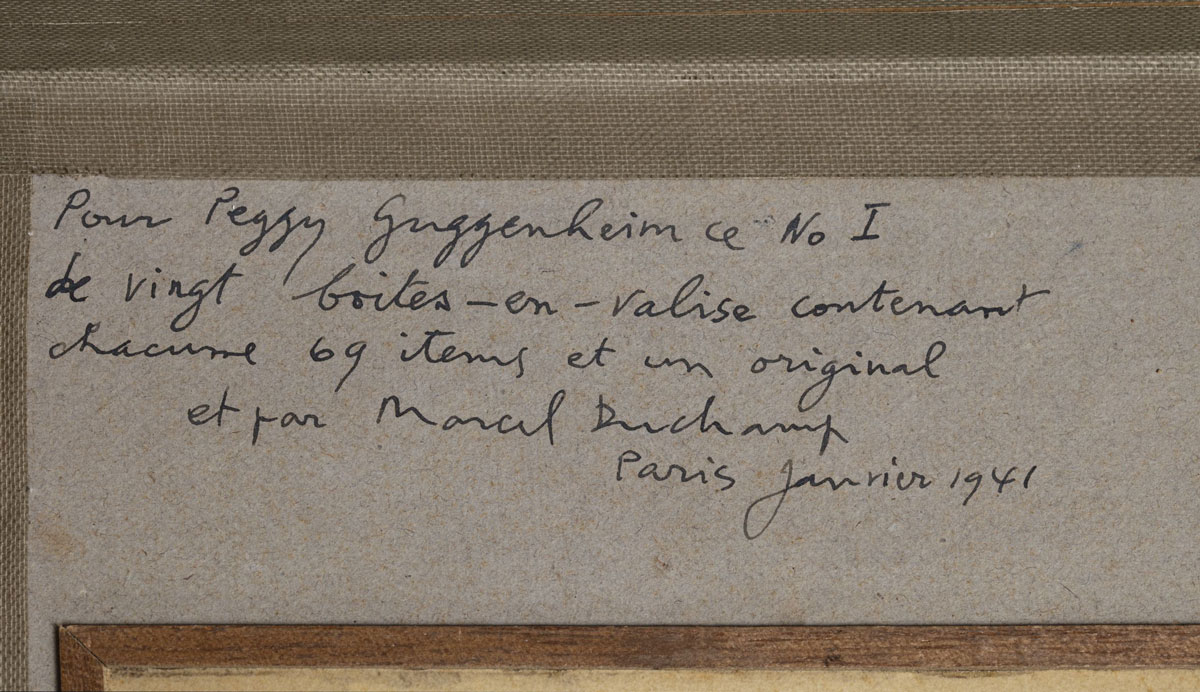 Pour Peggy Guggenheim ce No I
de vingt boites-en-valise contenant
chacune 69 items et un original
et par Marcel Duchamp
Paris Janvier 1941